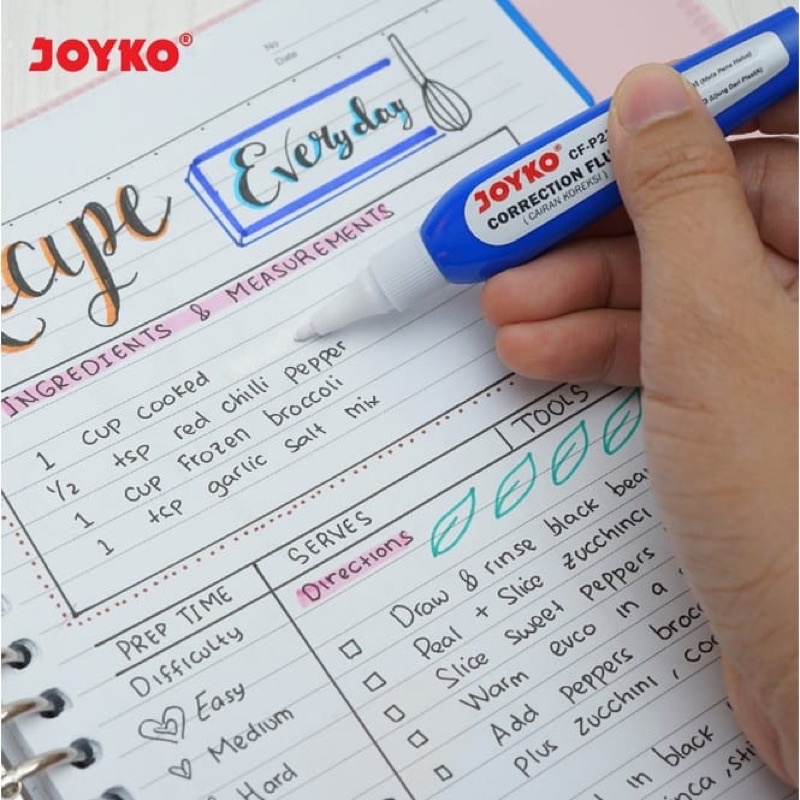 JOYKO®
No
Date
Everyday
Recipe
INGREDIENTS & MEASUREMENTS
1 cup cooked
1/2 tsp red chilli pepper
1 cup frozen broccoli
1 tsp garlic salt mix
JOYKO®
CORRECTION FLU
( CAIRAN KOREKSI )
CF-P22
(Mata Pena Halus)
(Ujung Dari Plastik)
TOOLS
SERVES
PREP TIME
Difficulty
Easy
Medium
Hard
Directions
Draw & rinse black bea
Peal + Slice zucchinci
Slice sweet peppers
Warm evco in a
Add peppers brocc
plus zucchini , co
in black